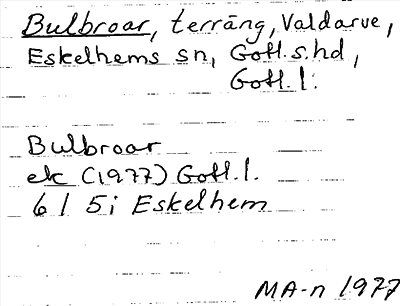 Bulbroar, terräng, Valdarve,
Eskelhems sn, Gotl.s.hd,
Gotl.l.
Bulbroar
ek (1977) Gotl.l.
6 I 5i Eskelhem
MA-n 1977